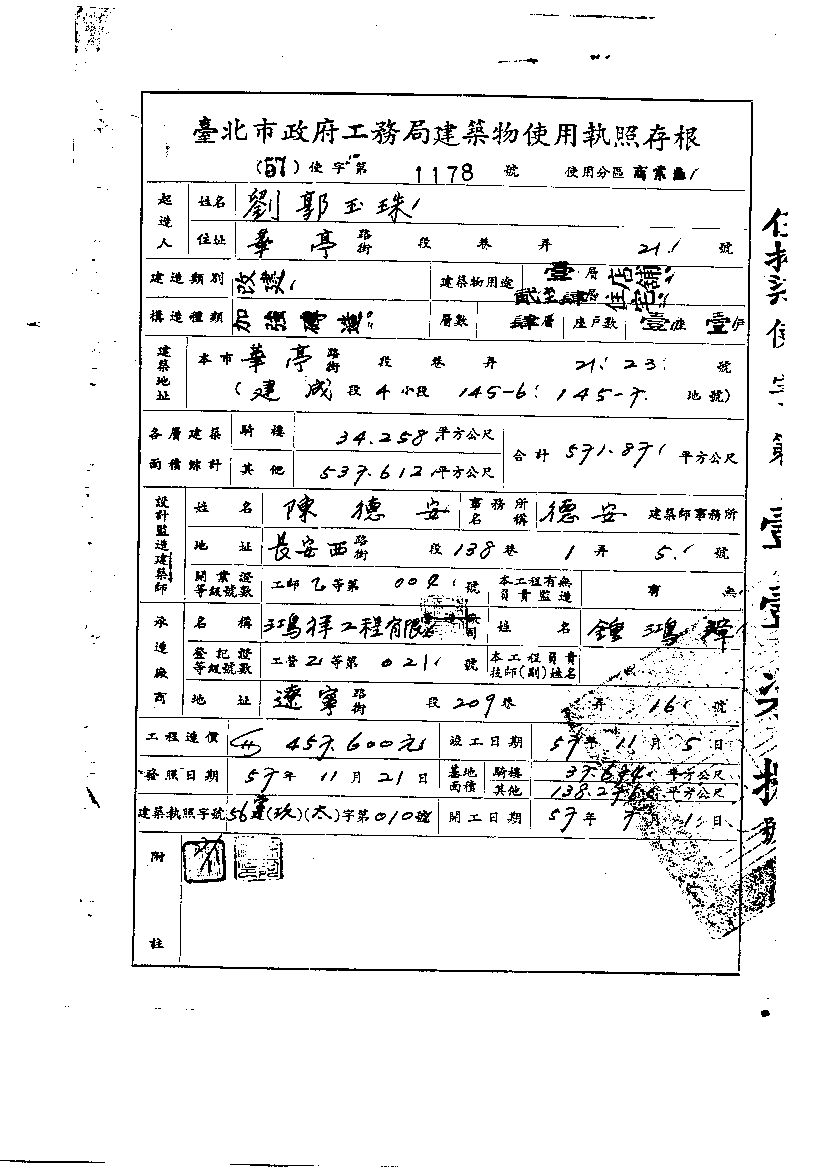 臺北市政府工務局建築物使用執照存根
(57) 使字第 1178 號 使用分區 商業區
起造人 姓名 劉郭玉珠
住址 華亭 路街 段 巷 弄 21 號
建造類別 改建 建築物用途 壹層 店舖 貳至肆層 住宅
構造種類 加強磚造 層數 肆層 座戶數 壹座 壹戶
建築地址 本市 華亭 路街 段 巷 弄 21. 23. 號
(建成 段 4 小段 145-6 145-7 地號)
各層建築面積總計 騎樓 34.258 平方公尺 合計 571.871 平方公尺
其他 537.612 平方公尺
設計監造建築師 姓名 陳德安 事務所名稱 德安 建築師事務所
地址 長安西 路街 段 138 巷 1 弄 5 號
開業證等級號數 工師乙等第 號 本工程有無負責監造 有 無
承造廠商 名稱 鴻祥工程有限公司 姓名 鍾鴻
登記證等級號數 工營乙等第 021 號 本工程負責技師(副)姓名
地址 遼寧 路街 段 209 巷 弄 16 號
工程造價 457.600元 竣工日期 57年 11月 5日
發照日期 57年 11月 21日 基地面積 騎樓 平方公尺
其他 平方公尺
建築執照字號 56建(玖)(大)字第010號 開工日期 57年 7月 1日
附註